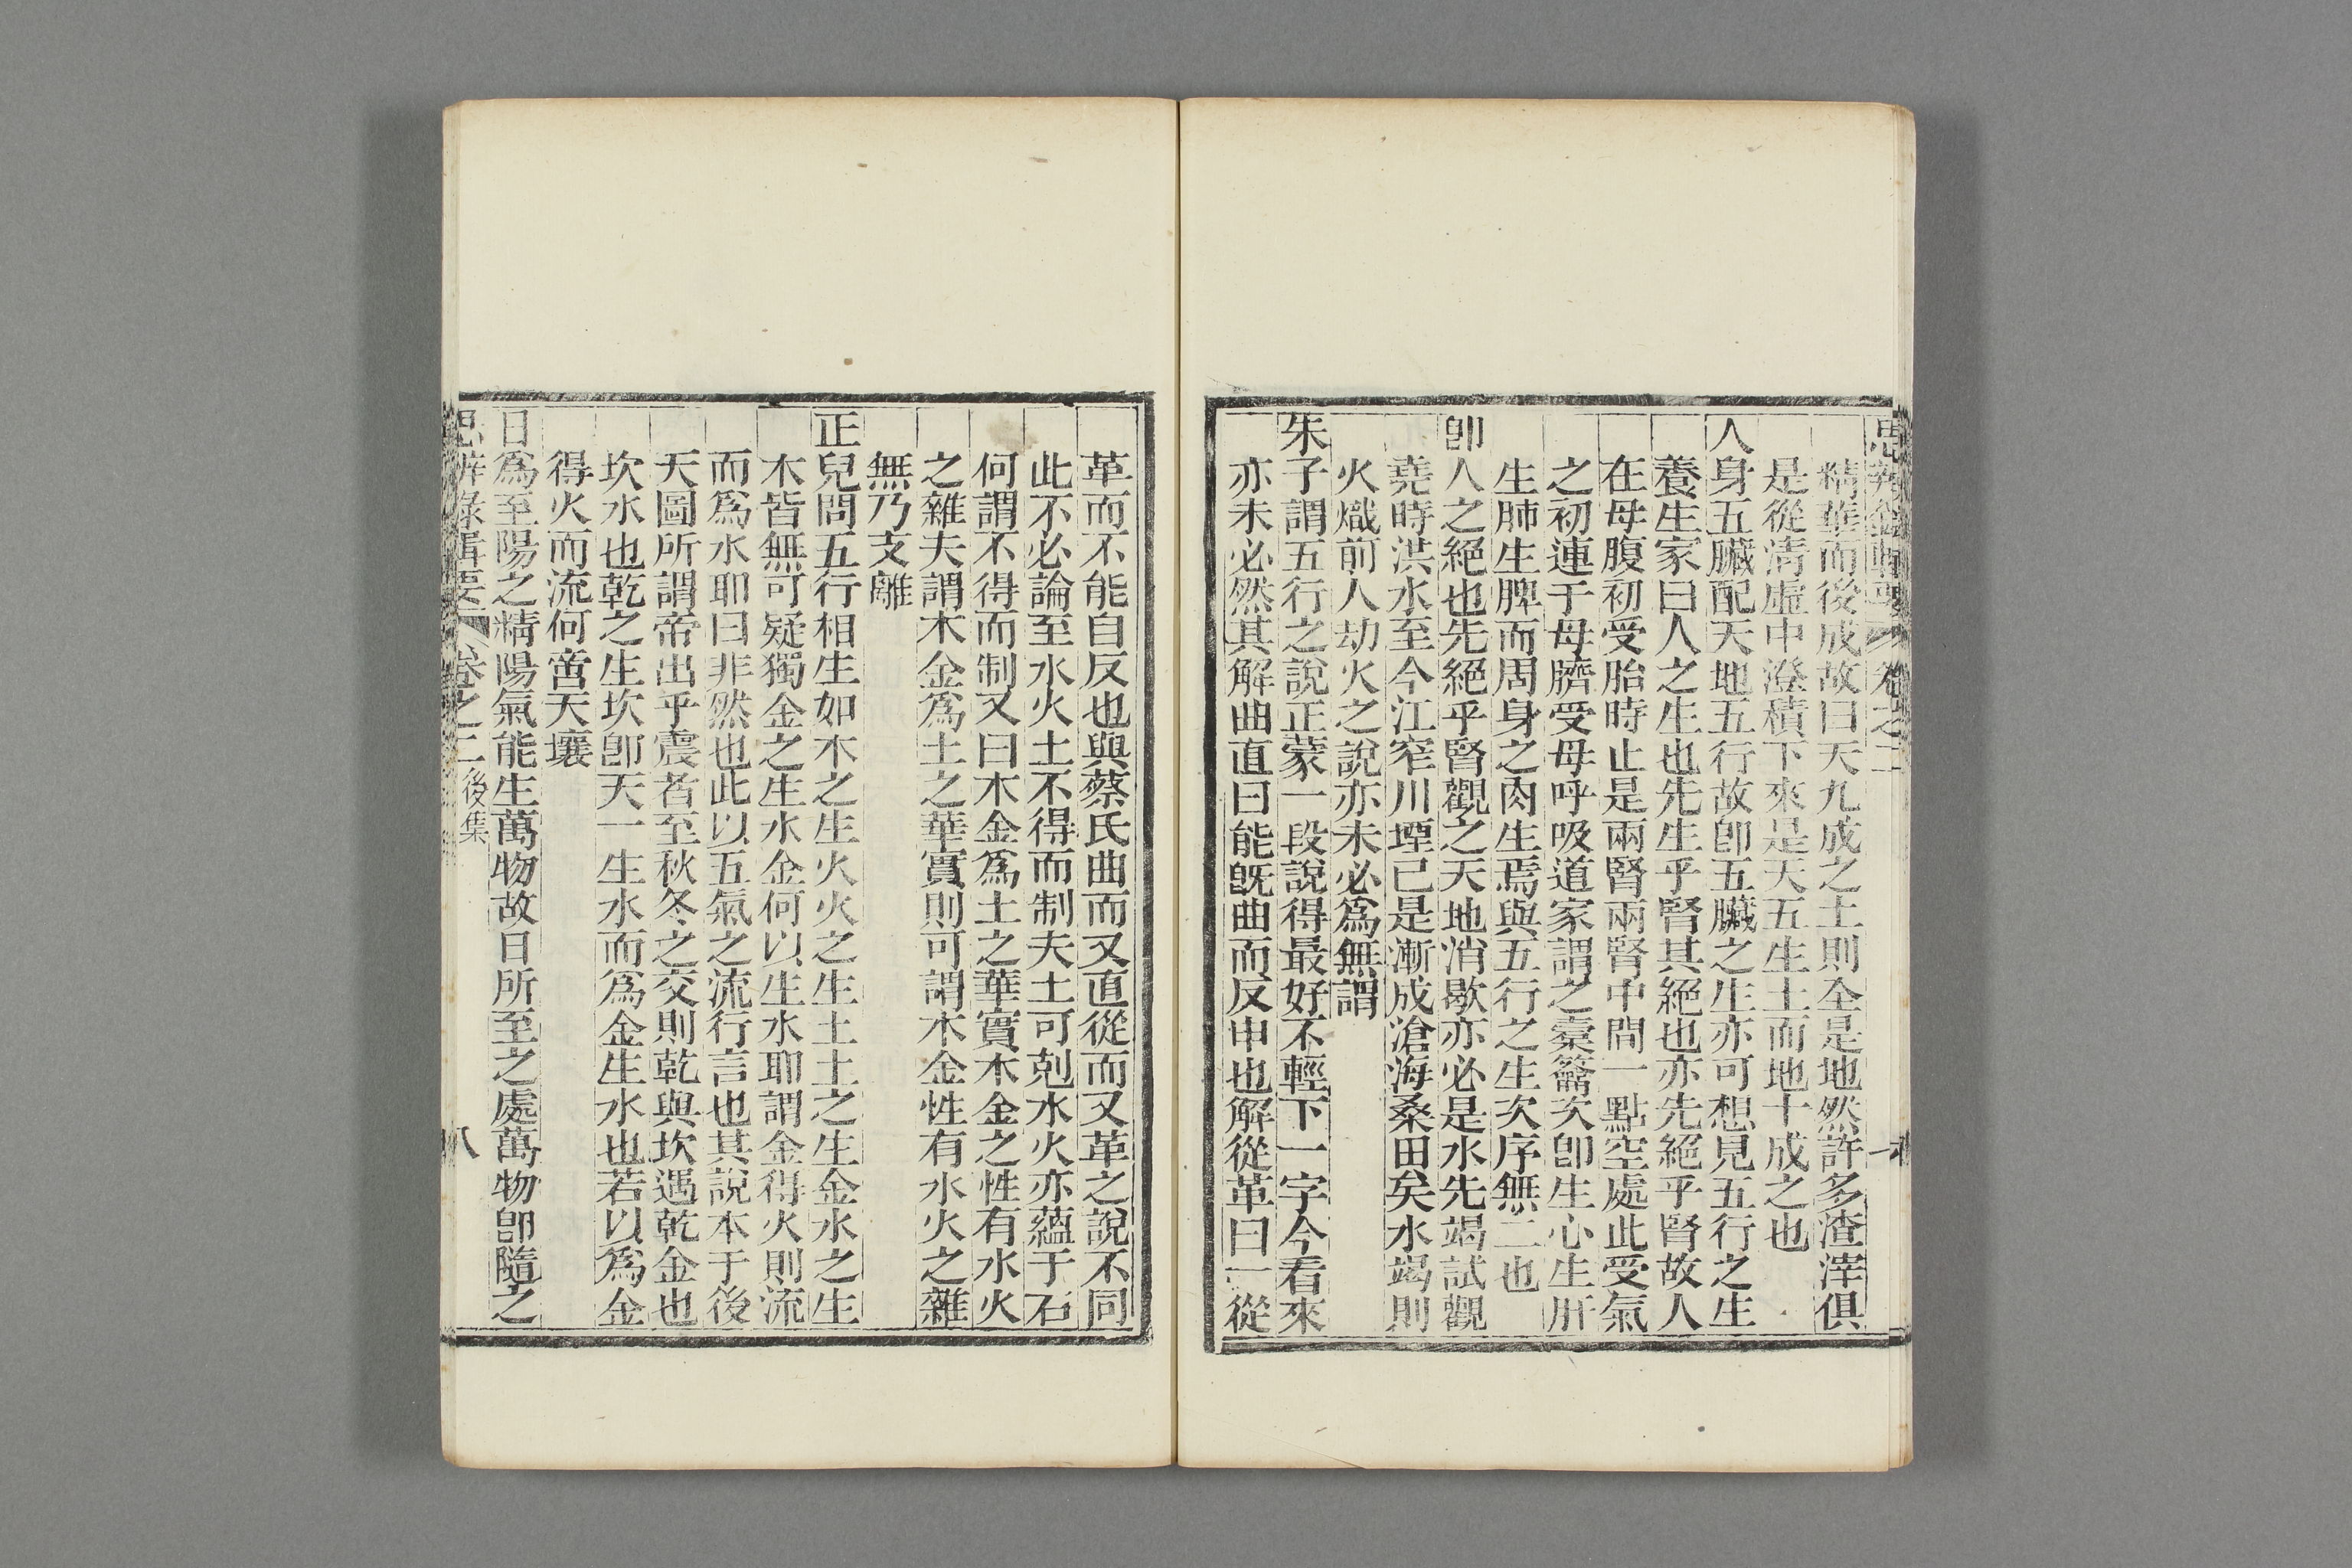 思辨錄輯要 卷之二
精華而後成故曰天九成之土則全是地然許多渣滓俱
是從清虛中澄積下來是天五生土而地十成之也
人身五臟配天地五行故卽五臟之生亦可想見五行之生
養生家曰人之生也先生乎腎其絕也亦先絕乎腎故人
在母腹初受胎時止是兩腎兩腎中間一點空處此受氣
之初連于母臍受母呼吸道家謂之槖籥次卽生心生肝
生肺生脾而周身之肉生焉與五行之生次序無二也
卽人之絕也先絕乎腎觀之天地消歇亦必是水先竭試觀
堯時洪水至今江窄川堙已是漸成滄海桑田矣水竭則
火熾前人劫火之說亦未必爲無謂
朱子謂五行之說正蒙一段說得最好不輕下一字今看來
亦未必然其解曲直曰能旣曲而反申也解從革曰一從
革而不能自反也與蔡氏曲而又直從而又革之說不同
此不必論至水火土不得而制夫土可剋水火亦蘊于石
何謂不得而制又曰木金爲土之華實木金之性有水火
之雜夫謂木金爲土之華實則可謂木金性有水火之雜
無乃支離
正兒問五行相生如木之生火火之生土土之生金水之生
木皆無可疑獨金之生水金何以生水耶謂金得火則流
而爲水耶曰非然也此以五氣之流行言也其說本于後
天圖所謂帝出乎震者至秋冬之交則乾與坎遇乾金也
坎水也乾之生坎卽天一生水而爲金生水也若以爲金
得火而流何啻天壤
日爲至陽之精陽氣能生萬物故日所至之處萬物卽隨之
思辨錄輯要 卷之二 後集 八